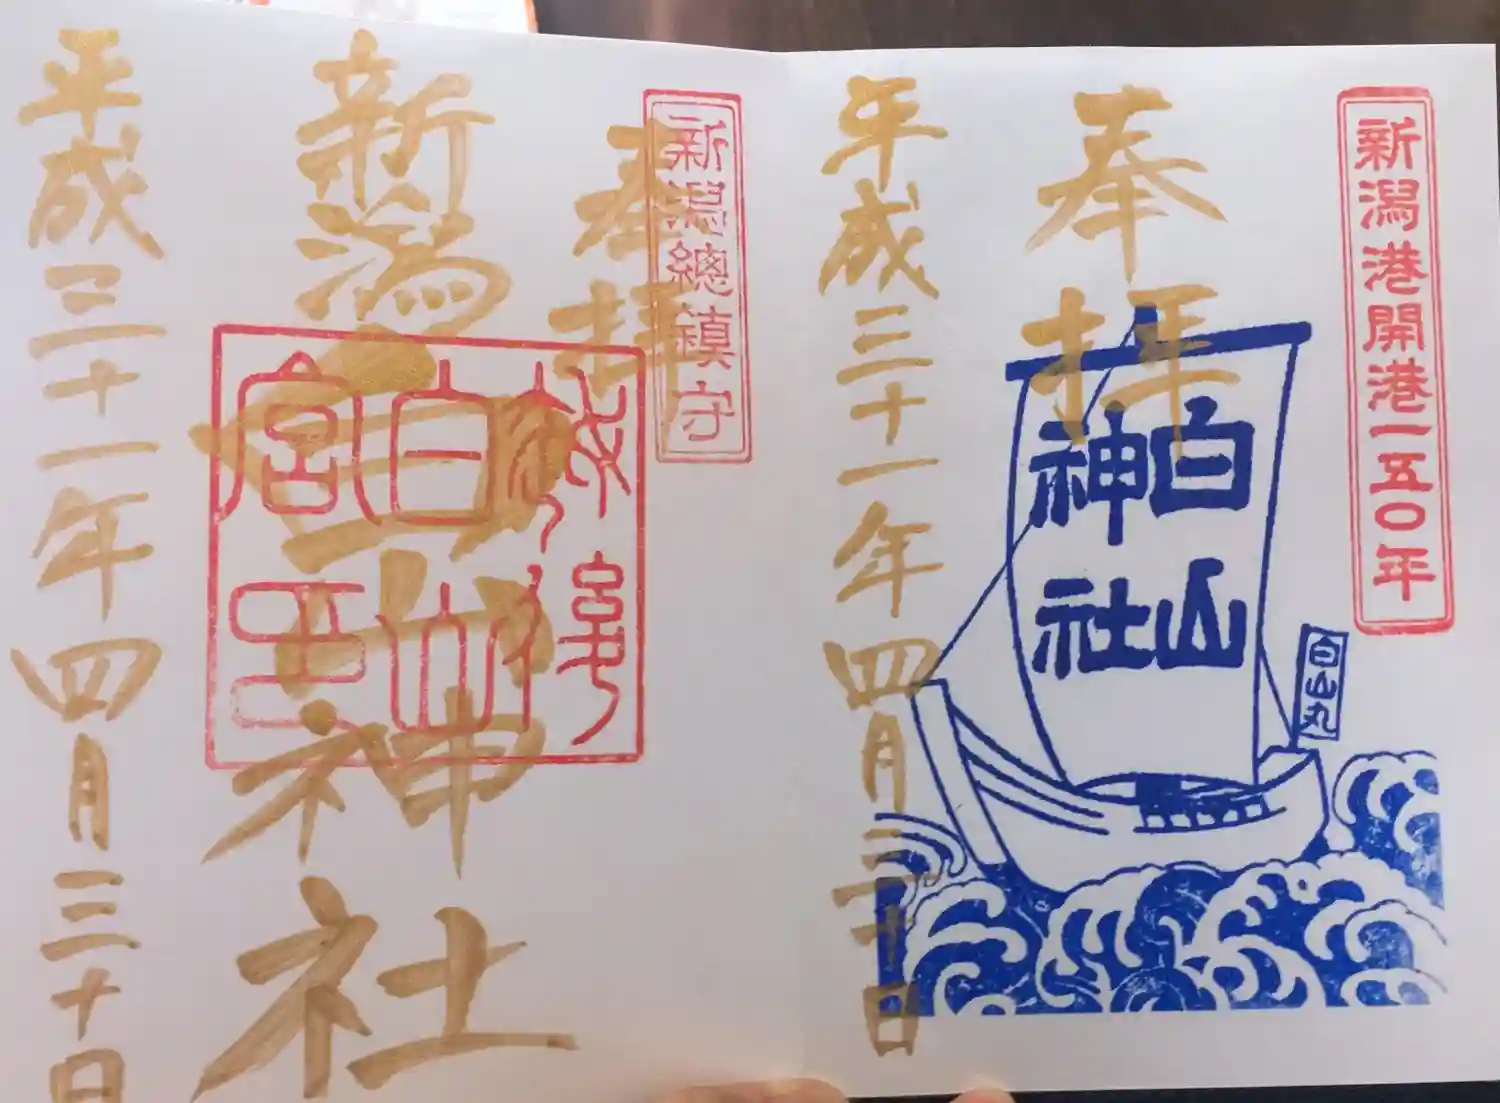 新潟港開港一五〇年
奉拝
白山
神社
白山丸
平成三十一年四月三十日
新潟總鎮守
奉拝
新潟白山神社
白山
宮印
平成三十一年四月三十日